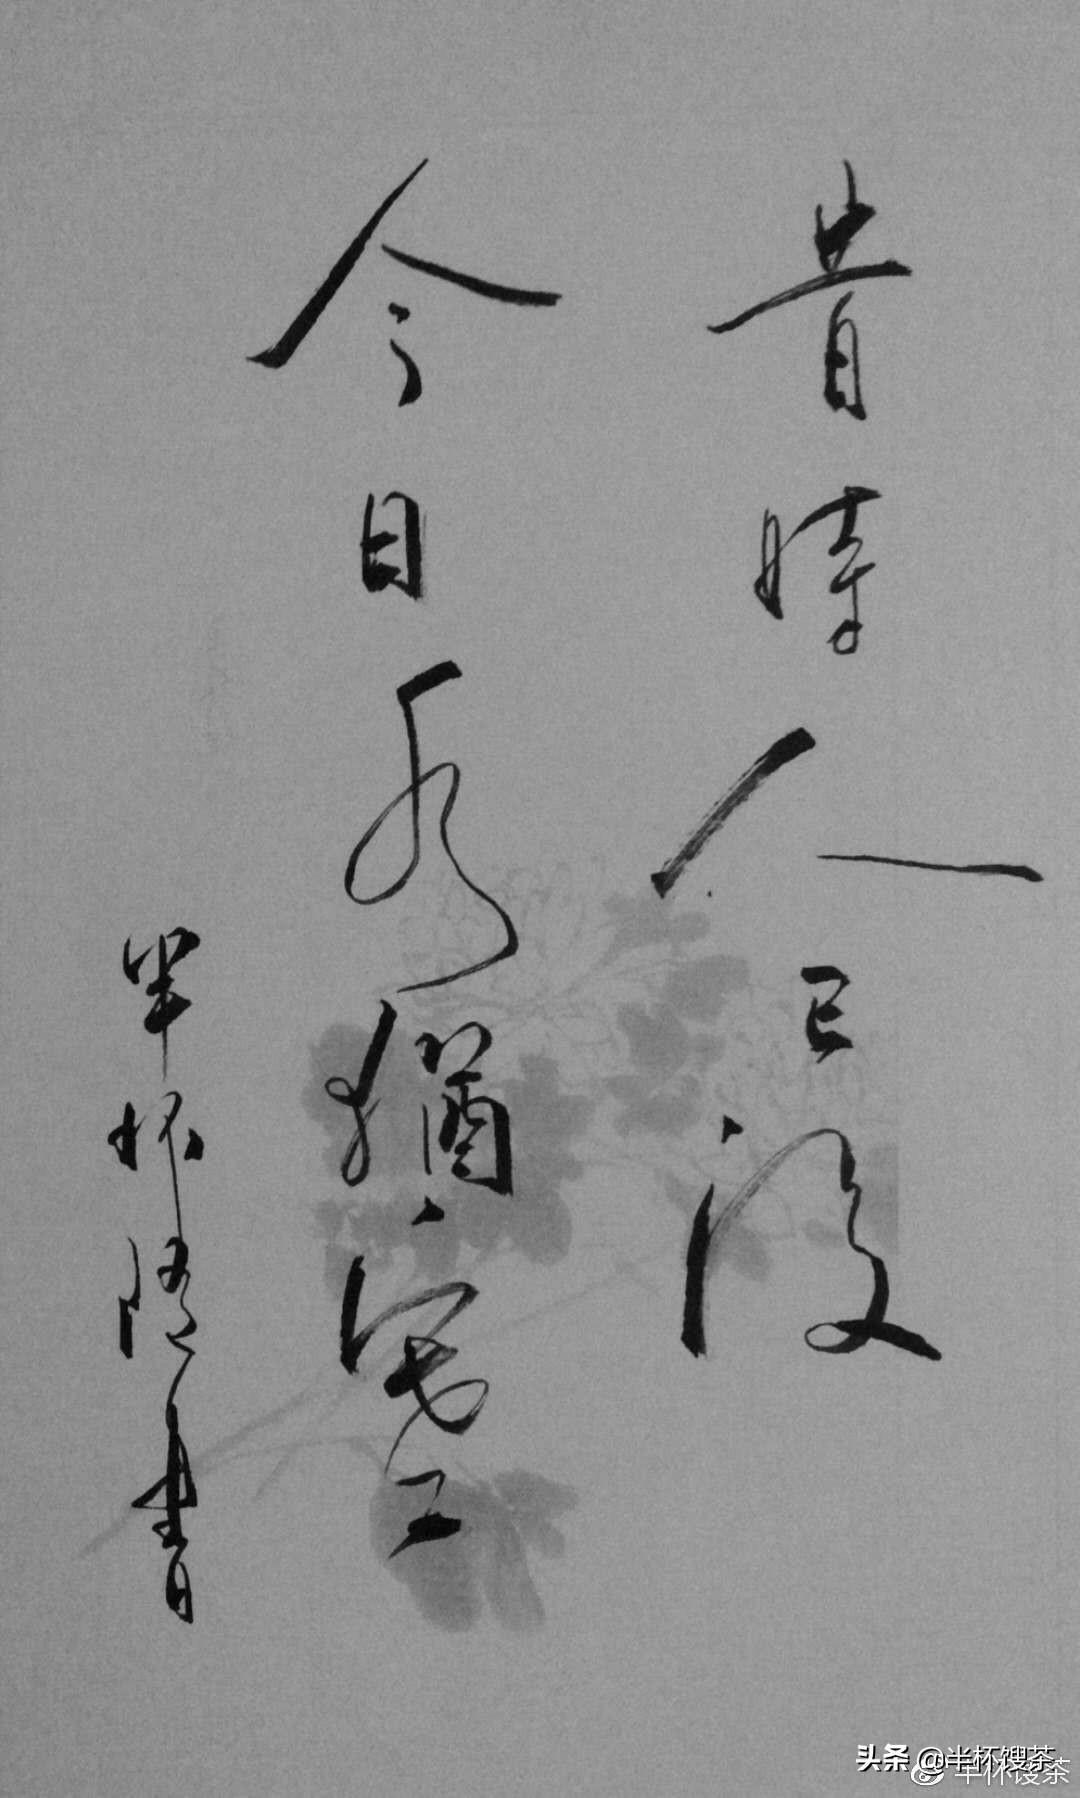 昔時人已沒
今日水猶寒
半杯隨書
头条 @半杯馊茶
半杯馊茶